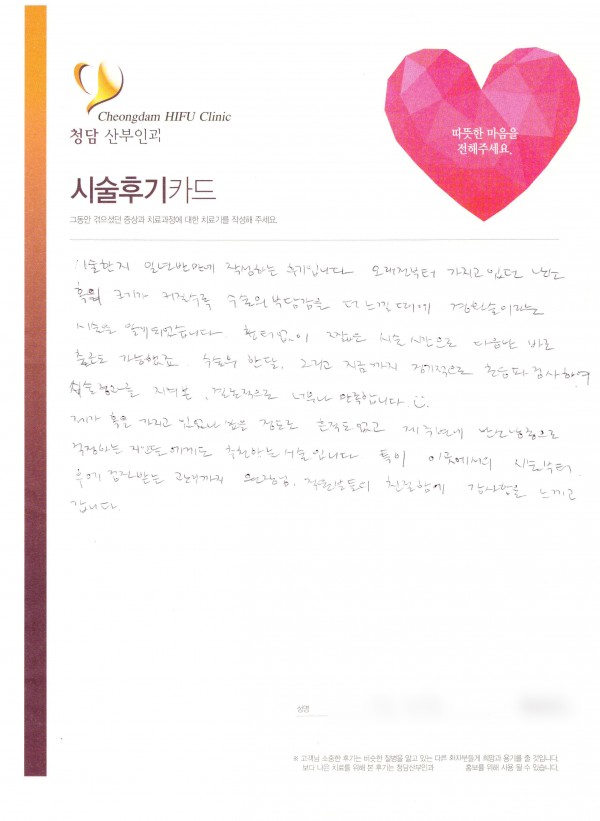 Cheongdam HIFU Clinic
청담 산부인과
따뜻한 마음을
전해주세요.
시술후기카드
그동안 겪으셨던 증상과 치료과정에 대한 치료기를 작성해 주세요.
시술한지 일년반만에 작성하는 후기입니다 오래전부터 가지고 있던 난소
혹의 크기가 커질수록 수술의 부담감을 더 느낄 때에 경화술이라는
시술을 알게되었습니다. 흉터없이 짧은 시술 시간으로 다음날 바로
출근도 가능했죠. 수술후 한달, 그리고 지금까지 정기적으로 초음파 검사하며
시술결과를 지켜본, 결론적으로 너무나 만족합니다
제가 혹을 가지고 있었나 싶을 정도로 흔적도 없고 제 주변에 난소낭종으로
걱정하는 지인들에게도 추천하는 시술입니다 특히 이곳에서의 시술부터
후에 검진받는 관리까지 원장님, 직원분들의 친절함에 감사함을 느끼고
갑니다.
성명
※ 고객님 소중한 후기는 비슷한 질병을 앓고 있는 다른 환자분들께 희망과 용기를 줄 것입니다.
보다 나은 치료를 위해 본 후기는 청담산부인과 홍보를 위해 사용 될 수 있습니다.